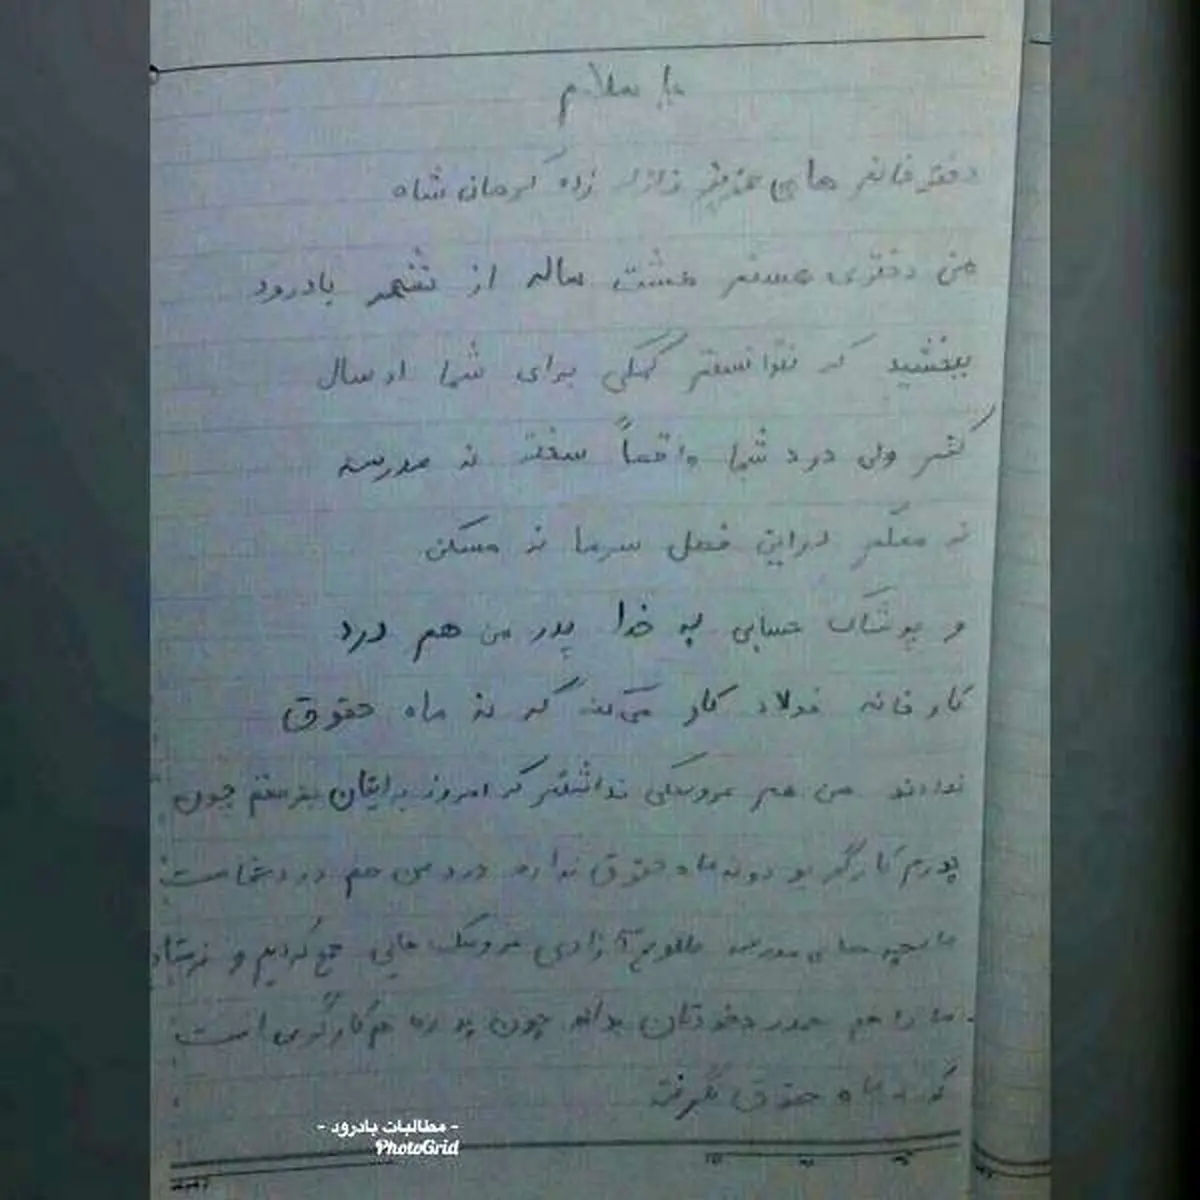 با سلام
دختر خانم های عزیز زلزله زده کرمان شاه
من دختری هستم هشت ساله از شهر بادرود
ببخشید که نتوانستم کمکی برای شما ارسال
کنم ولی درد شما واقعاً سخته نه مدرسه
نه معلم در این فصل سرما نه مسکن
و پوشاک حسابی به خدا پدر من هم درد
کارخانه فولاد کار می‌کند که نه ماه حقوق
ندادند من هم عروسکی نداشتم که امروز برایتان بفرستم چون
پدرم کارگر بو دونه ماه حقوق نداره درد من هم درد شماست
ما بچه های مدرسه آزادی عروسک هایی جمع کردیم و فرستاد
ما را هم همدرد خودتان بدانید چون پدر ما هم کارگری است
که نه ماه حقوق نگرفته
- مطالبات بادرود -
PhotoGrid